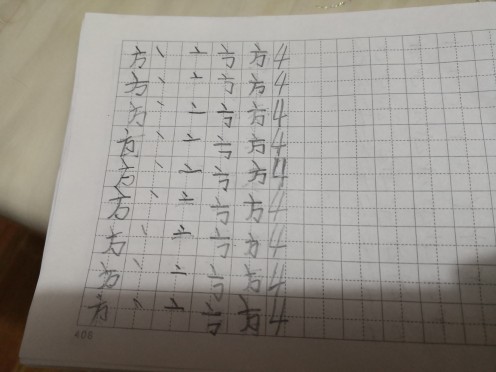 方 丶 亠 方 4
方 丶 亠 方 4
方 丶 亠 方 4
方 丶 亠 方 4
方 丶 亠 方 4
方 丶 亠 方 4
方 丶 亠 方 4
方 丶 亠 方 4
方 丶 亠 方 4